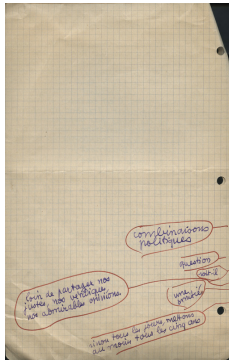 combinaisons
politiques
question
Loin de partager nos
justes, nos
nos admirables opinions.
une
sinon tous les jours, mettons
au moins tous les cinq ans